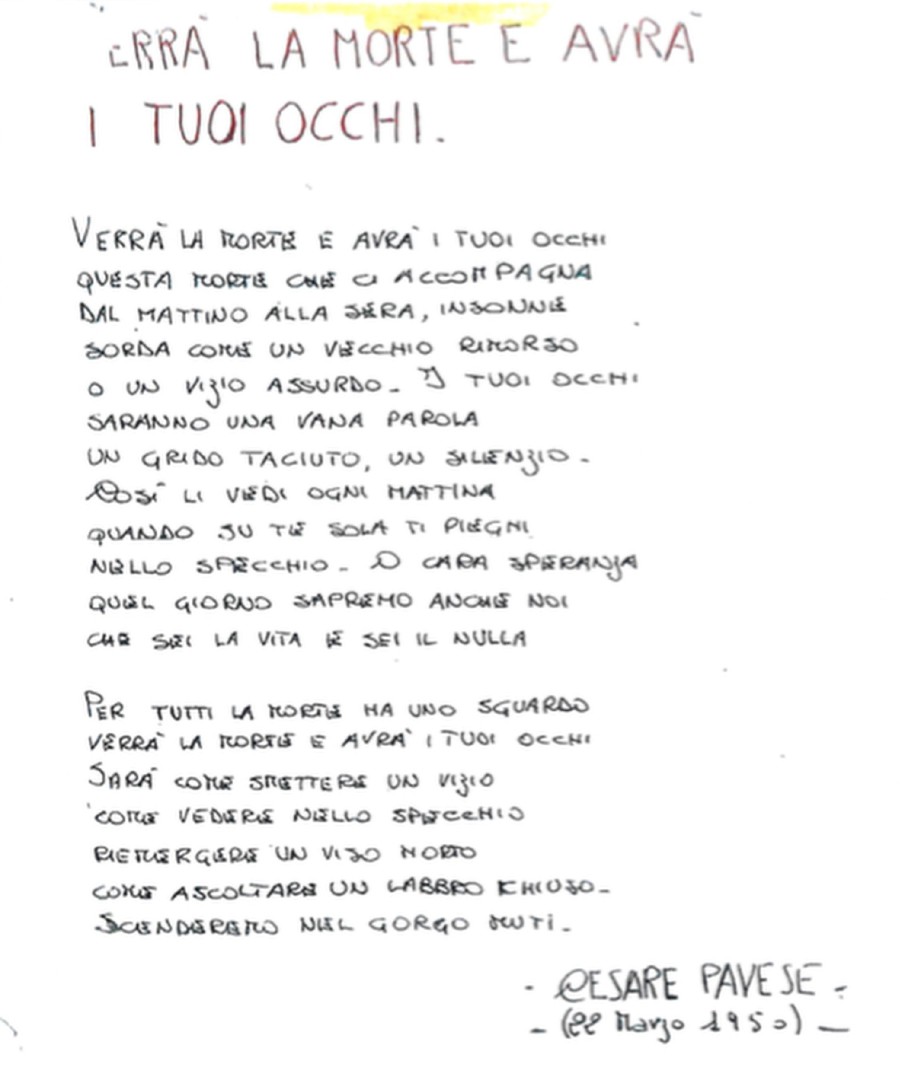 ERRÀ LA MORTE E AVRÀ
I TUOI OCCHI.
VERRÀ LA MORTE E AVRA' I TUOI OCCHI
QUESTA MORTE CHE CI ACCOMPAGNA
DAL MATTINO ALLA SERA, INSONNE
SORDA COME UN VECCHIO RIMORSO
O UN VIZIO ASSURDO. I TUOI OCCHI
SARANNO UNA VANA PAROLA
UN GRIDO TACIUTO, UN SILENZIO.
COSÌ LI VEDI OGNI MATTINA
QUANDO SU TE SOLA TI PIEGHI
NELLO SPECCHIO. O CARA SPERANZA
QUEL GIORNO SAPREMO ANCHE NOI
CHE SEI LA VITA E SEI IL NULLA
PER TUTTI LA MORTE HA UNO SGUARDO
VERRA' LA MORTE E AVRA' I TUOI OCCHI
SARÀ COME SMETTERE UN VIZIO
COME VEDERE NELLO SPECCHIO
RIEMERGERE UN VISO MORTO
COME ASCOLTARE UN LABBRO CHIUSO.
SCENDEREMO NEL GORGO MUTI.
- CESARE PAVESE -
- (22 Marzo 1950) -